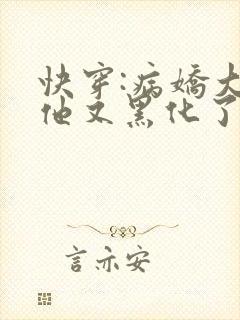 快穿:病娇大
他又黑化了
言亦安